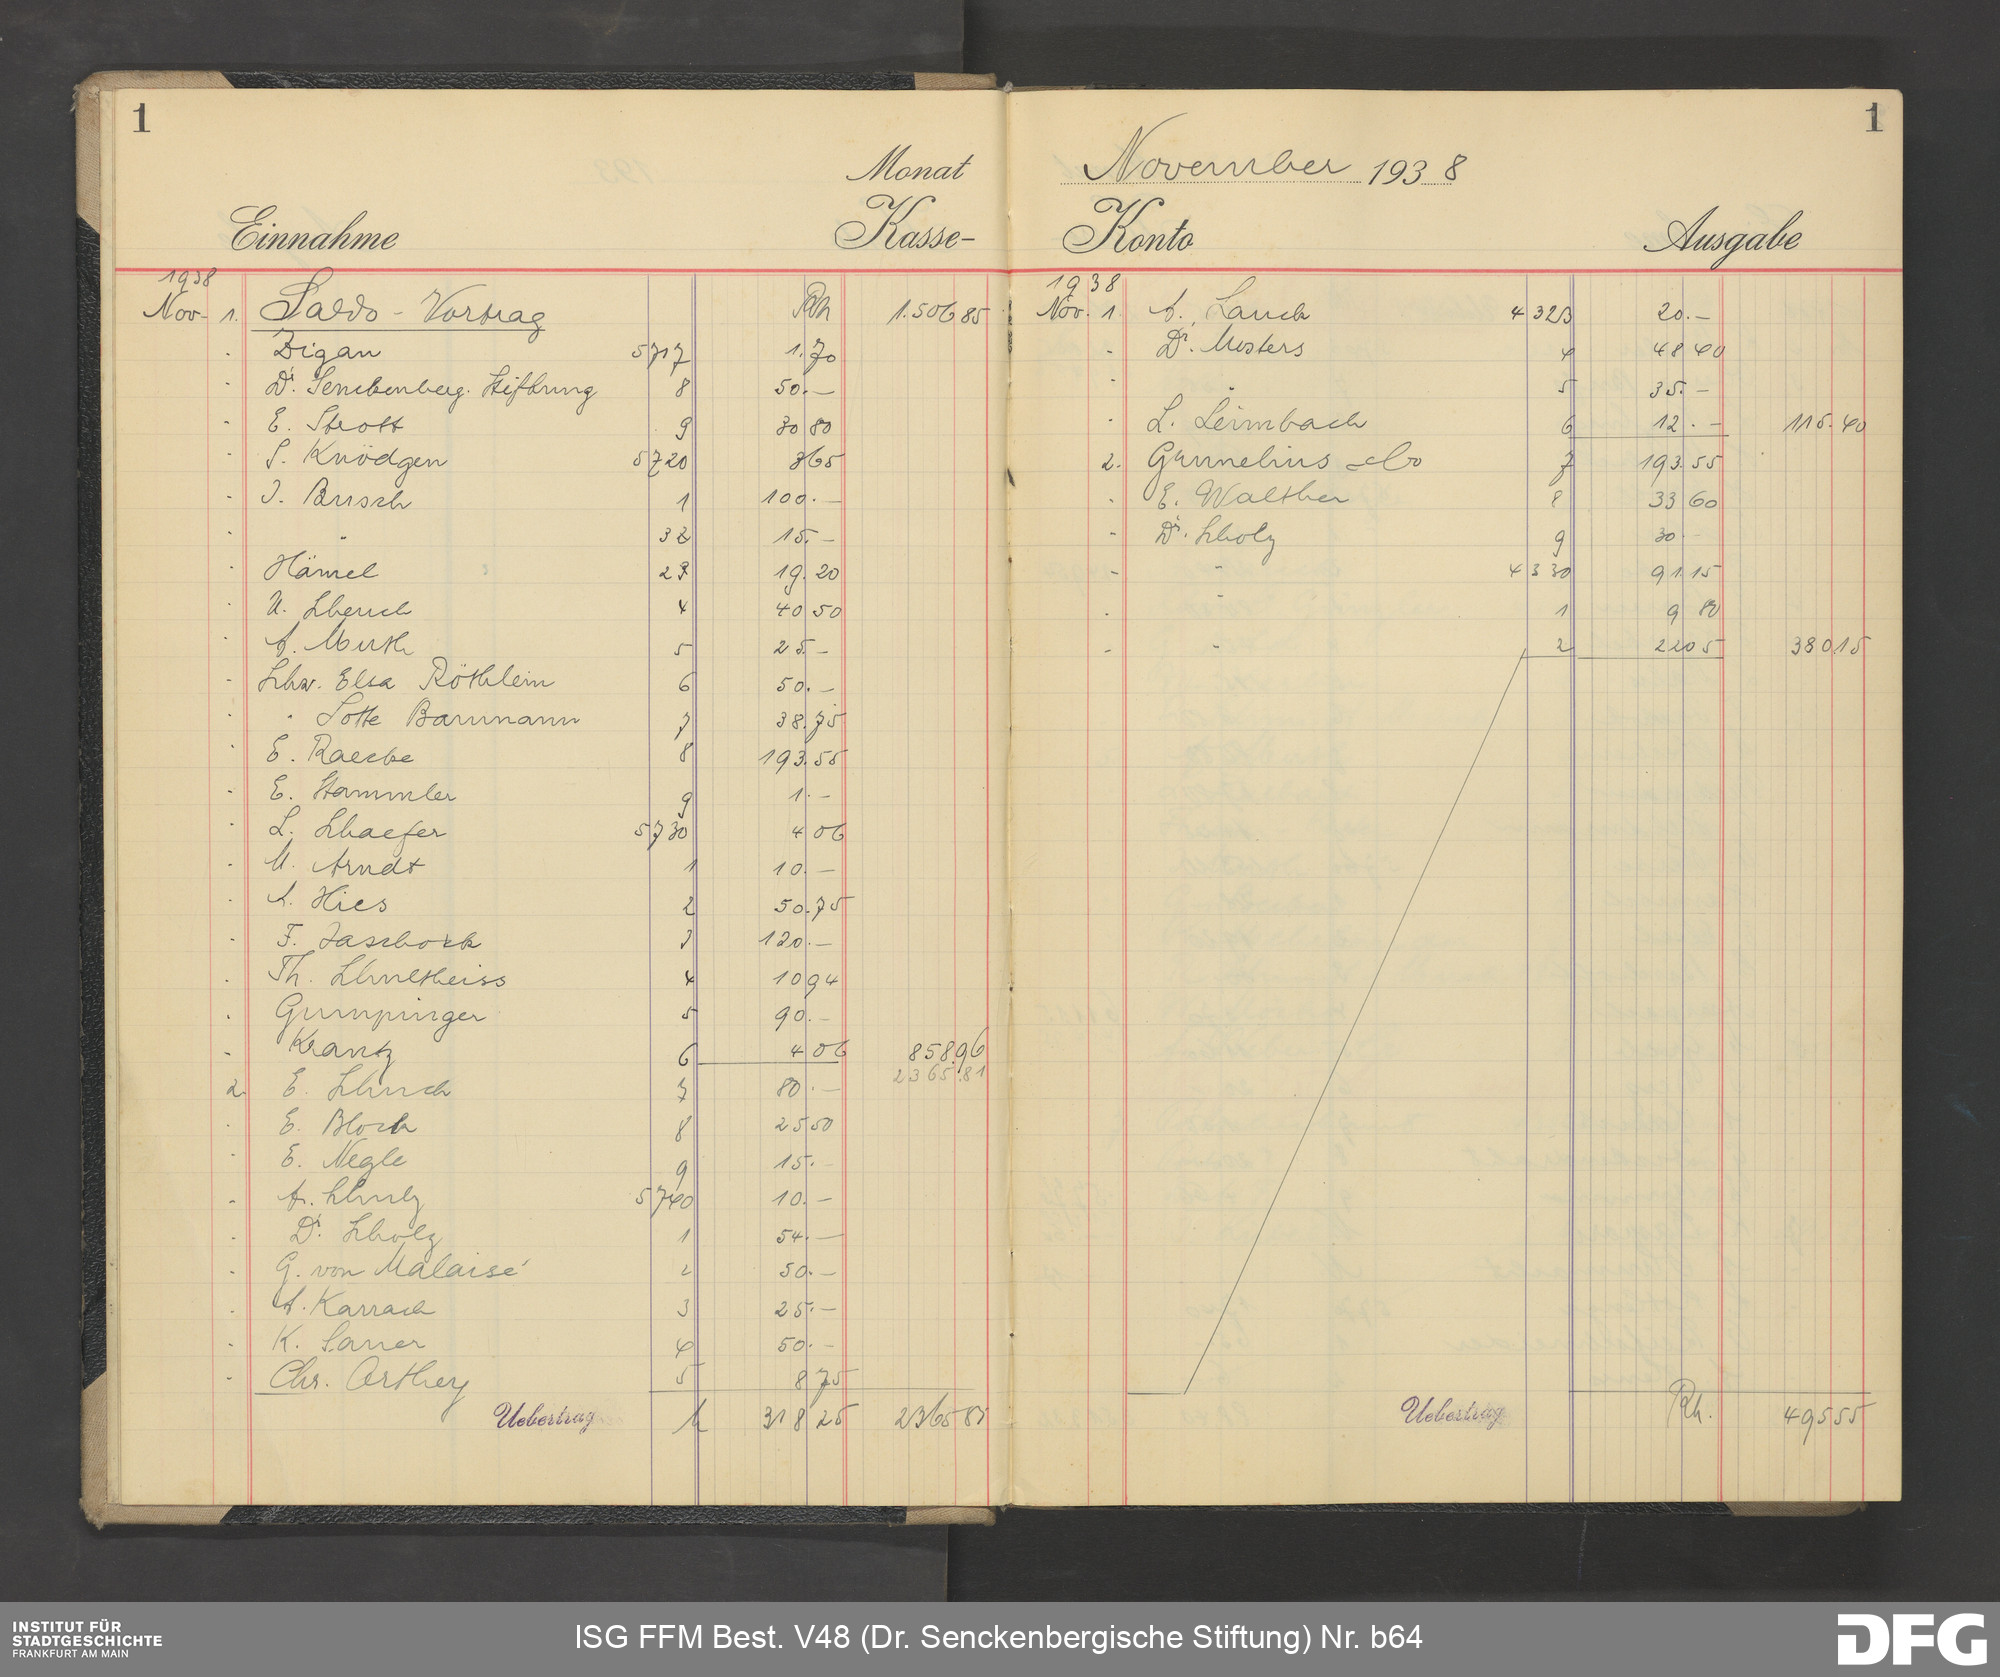 1
Monat
Einnahme Kasse-
1938
Nov. 1. Saldo - Vortrag Rh 1.506 85
" Zigan 5717 1.70
" Dr. Senckenberg. Stiftung 8 50.—
" E. Strott 9 30 80
" S. Knödgen 5720 3 65
" J. Busch 1 100.—
" " 32 15.—
" Hämel 23 19.20
" 4 40 50
" A. Muth 5 25.—
" Schw. Elsa Röthlein 6 50.—
" " Lotte Baumann 7 38.75
" E. Raecke 8 193.55
" E. Stammler 9 1.—
" L. Schaefer 5730 4 06
" M. Arndt 1 10.—
" A. Hies 2 50.75
" F. Jaschock 3 120.—
" Th. Schultheiss 4 10 94
" Gumpinger 5 90.—
" Krantz 6 4 06 858.96
2365.81
2 E. Schuch 7 80.—
" E. Block 8 25 50
" E. Negle 9 15.—
" A. Schulz 5740 10.—
" Dr. Scholz 1 54.—
" G. von Malaisé 2 50.—
" A. Karrach 3 25.—
" K. Sauer 4 50.—
" Chr. Orthey 5 8 75
Uebertrag 318 25 2365 81
1
November 1938
Konto Ausgabe
1938
Nov. 1. A. Lauck 4323 20.—
" Dr. Mosters 4 48 40
" " 5 35.—
" L. Leimbach 6 12.— 115.40
2. Grunelius & Co 7 193.55
" E. Walther 8 33 60
" Dr. Scholz 9 30.—
" " 4330 91.15
" " 1 9 80
" " 2 22 05 380.15
Uebertrag Rh. 495 55
INSTITUT FÜR
STADTGESCHICHTE
FRANKFURT AM MAIN
ISG FFM Best. V48 (Dr. Senckenbergische Stiftung) Nr. b64
DFG